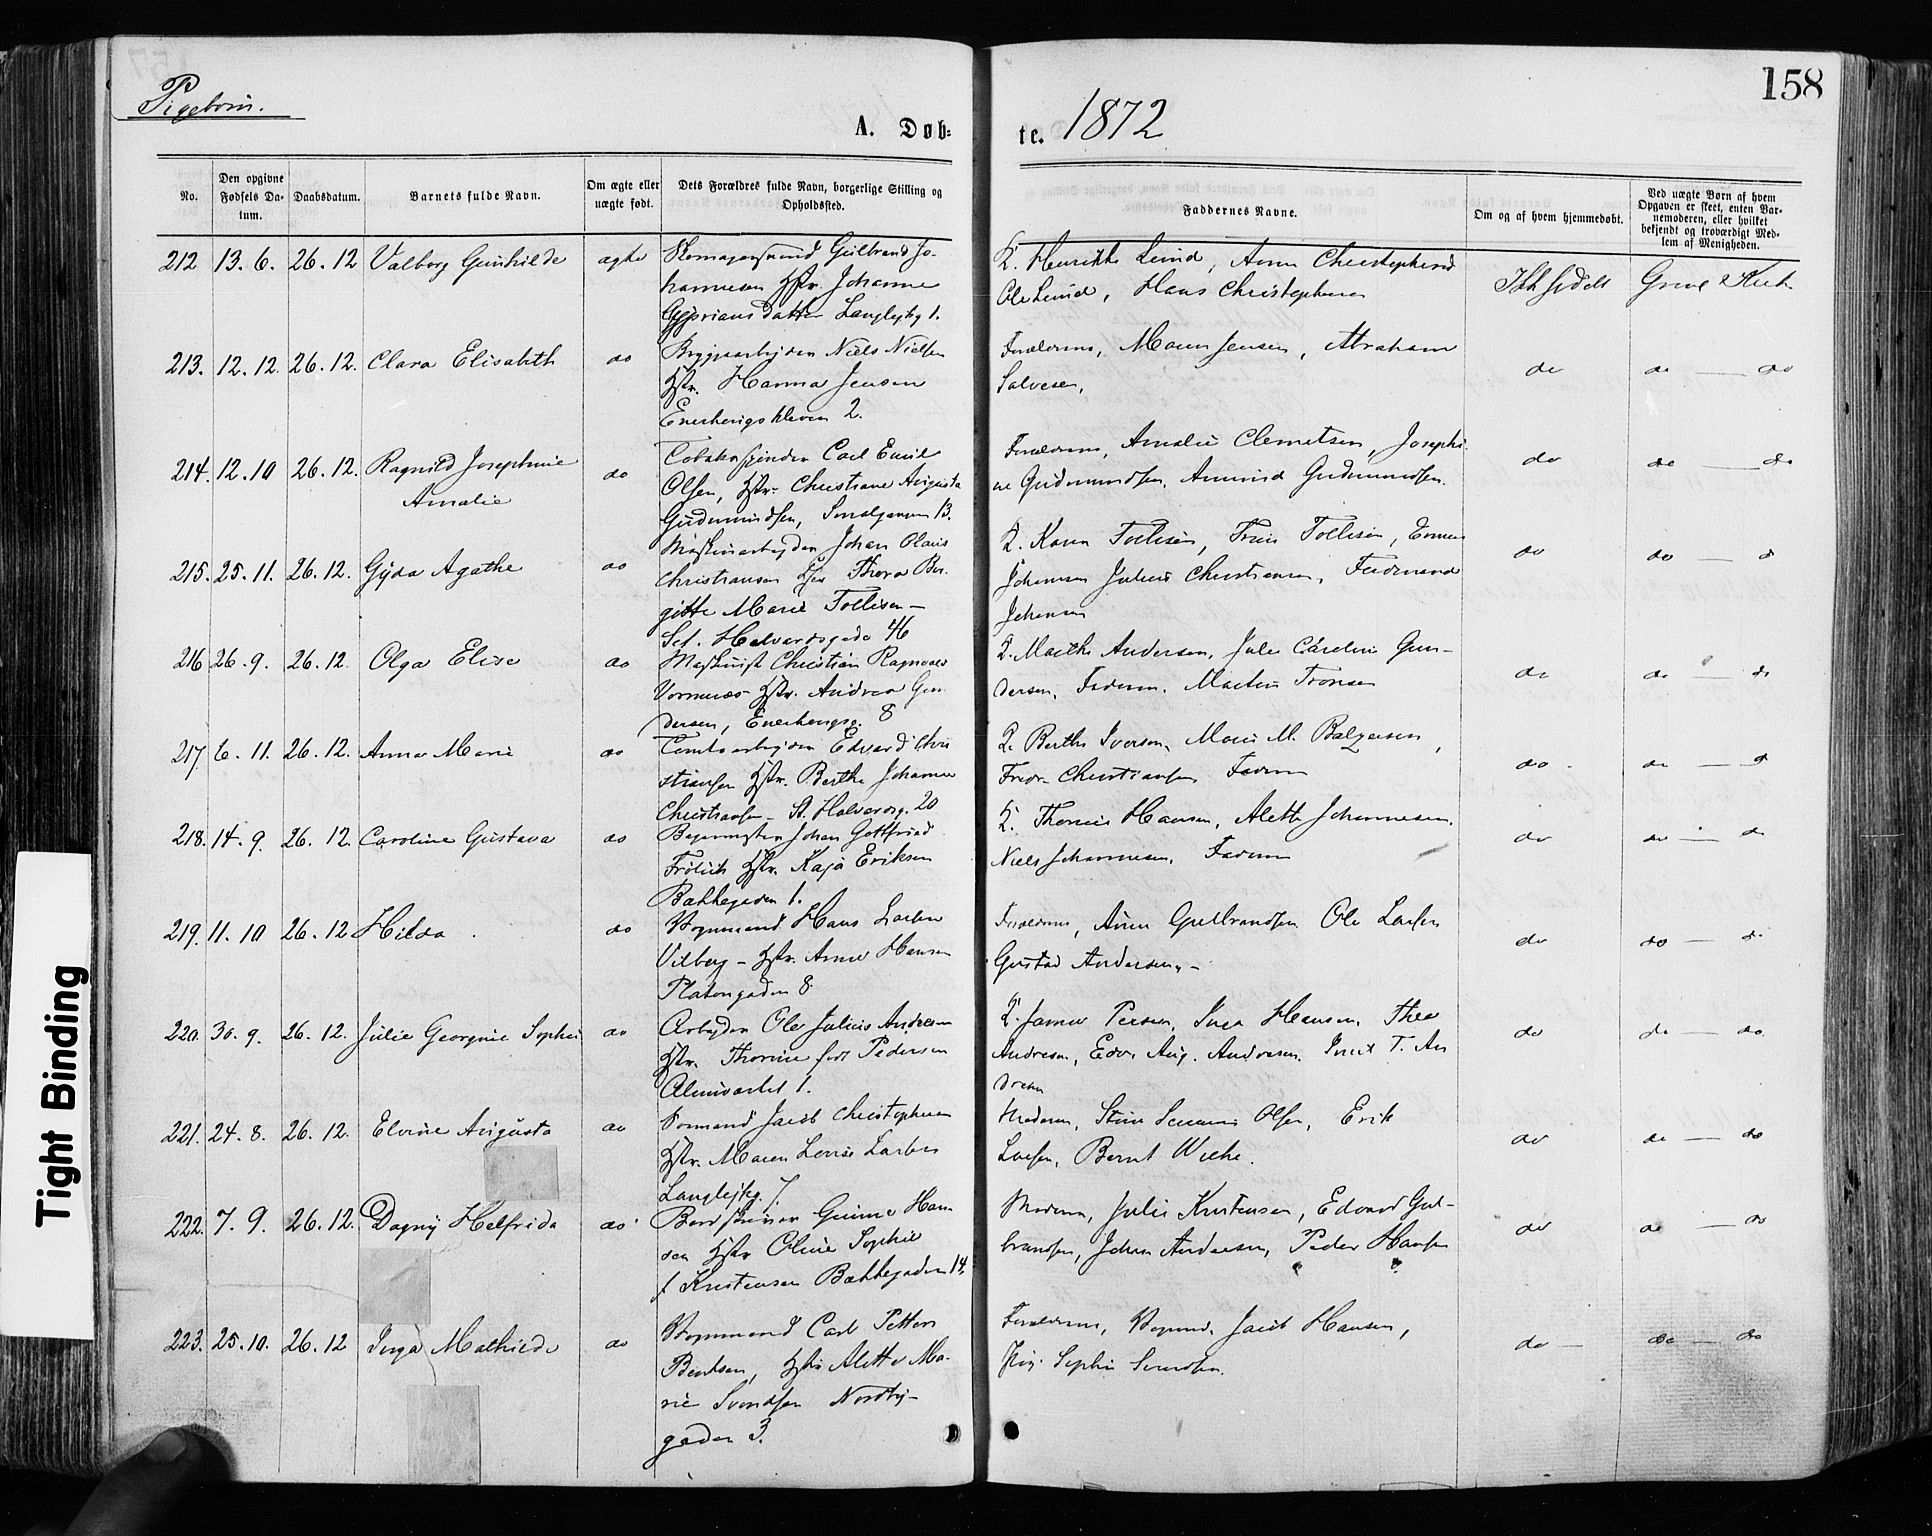 Pigebørn.
158
A. Døb-
te. 1872
No.
Den opgivne Fødsels Da-
tum.
Daabsdatum.
Barnets fulde Navn.
Om ægte eller
uægte født.
Dets Forældres fulde Navn, borgerlige Stilling og
Opholdssted.
Faddernes Navne.
Om og af hvem hjemmedøbt.
Ved uægte Børn af hvem
Opgaven er skeet, enten Bar-
nemoderen, eller hvilket
bekjendt og troværdigt Med-
lem af Menigheden.
212 13. 6. 26. 12 Valborg Gunhilde ægte
Gulbrand Jo-
hannesen Hstr. Johanne
datter Langlejkg 1.
Henrikke Lund, Anne Christophersd
Ole Lund, Hans Christophersen
213. 12. 12. 26. 12. Clara Elisabeth do
Bryggearbejder Niels Nielsen
Hstr. Hanna Jensen
Enerhaugskleven 2.
Forældrene, Maren Jensen, Abraham
Salvesen,
do do — do
214. 12. 10 26. 12. Ragnild Josephine
Amalie
do
Tobaksspinder Carl Emil
Olsen, Hstr. Christiane Augusta
Gudmundsen, Smalgangen 13.
Forældrene, Amalie Clemetsen, Josephi-
ne Gudmundsen, Amund Gudmundsen.
do do — do
215. 25. 11. 26. 12. Gyda Agathe do
Maskinarbejder Johan Olaus
Christiansen Hstr Thora Ber-
gitte Marie Tollisen —
Sct. Halvardsgade 46
Karen Tollisen, Tollisen,
Johansen Julius Christiansen, Ferdinand
Johansen
do do — do
216 26. 9. 26. 12. Olga Elise do
Maskinist Christian Ragnvald
Hstr. Andrea Gun-
dersen, Enerhaugsg. 8
Marthe Andersen, Julie Caroline Gun-
dersen, Faderen. Martin Tronsen
do do — do
217. 6. 11. 26. 12. Anna Marie do
Tomtearbejder Edvard Chri
stiansen Hstr. Berthe Johanne
Christiansen — St. Halvardsg. 20
Berthe Iversen, Maren M. Balzersen,
Fredr. Christiansen Faderen
do do — do
218. 14. 9. 26. 12. Caroline Gustava do
Bagermester Johan Gottfried
Frölich Hstr. Kaja Eriksen
Bakkegaden 1.
Thorine Hansen, Alette Johannesen.
Niels Johannesen, Faderen
do do — do
219. 11. 10 26. 12 Hilda do
Vognmand Hans Larsen
Vilberg — Hstr. Anne Hansen
Platousgaden 8
Forældrene, Anne Gulbrandsen Ole Larsen
Gustav Andersen, —
do do — do
220. 30. 9. 26. 12. Julie Georgine Sophie do
Arbejder Ole Julius Andresen
Hstr. Thorine født Pedersen
1.
Persen, Inga Hansen, Thea
Andresen, Edv. Aug. Andresen. T. An
dresen
do do — do
221. 24. 8. 26. 12. Elvine Augusta do
Formand Jacob Christophersen
Hstr. Maren Lovise Larsen
Langlejkg. 7.
Moderen, Olsen, Erik
Larsen, Bernt Wiche.
do do — do
222. 7. 9. 26. 12. Dagny Helfrida do
Bordskriver Gunne Han-
sen Hstr Oline Sophie
f Kristensen Bakkegaden 14.
Moderen, Julie Kristensen, Edvard Gul-
brandsen, Johan Andersen, Peder Hansen
do do — do
223. 25. 10. 26. 12 Inga Mathilde do
Vognmand Carl Petter
Bentsen, Hstr Alette Ma-
rie Svendsen Nordby-
gaden 3.
Forældrene, Vognmd. Jacob Hansen,
Sophie Svendsen.
do — do — do
Tight Binding